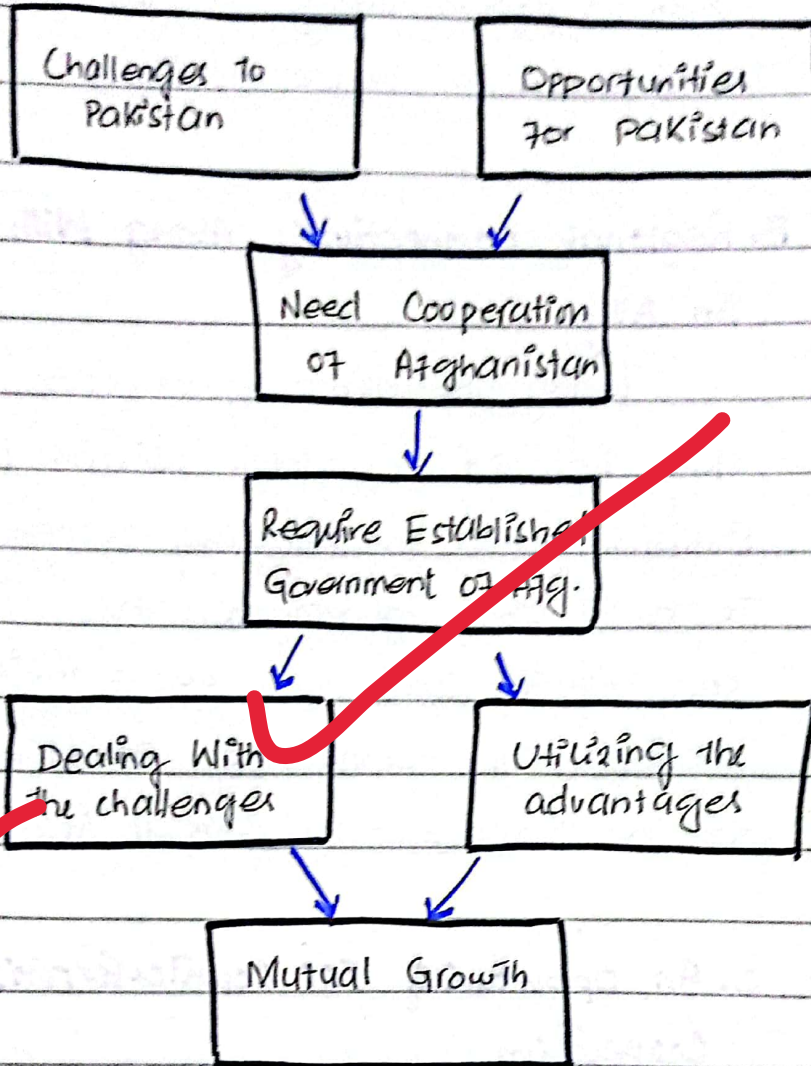 Challenges to
Pakistan
Opportunities
for Pakistan
Need Cooperation
of Afghanistan
Require Established
Government of Afg.
Dealing With
the challenges
Utilizing the
advantages
Mutual Growth